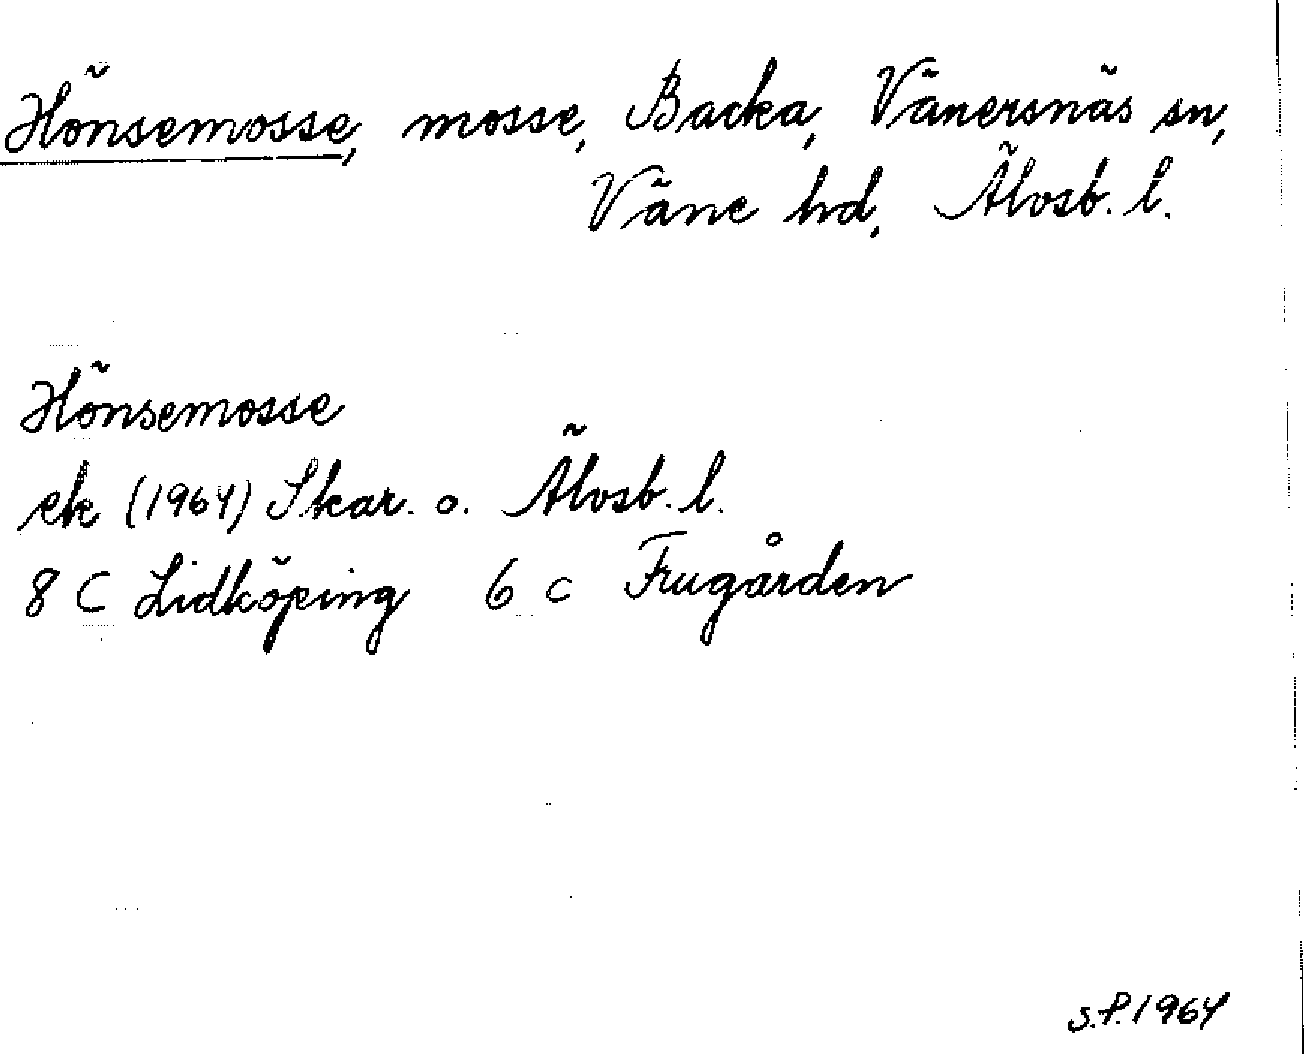 Hönsemosse, mosse, Backa, Vänersnäs sn,
Väne hd, Älvsb. l.
Hönsemosse
ek (1964) Skar. o. Älvsb. l.
8 C Lidköping 6 c Frugården
S.P. 1964